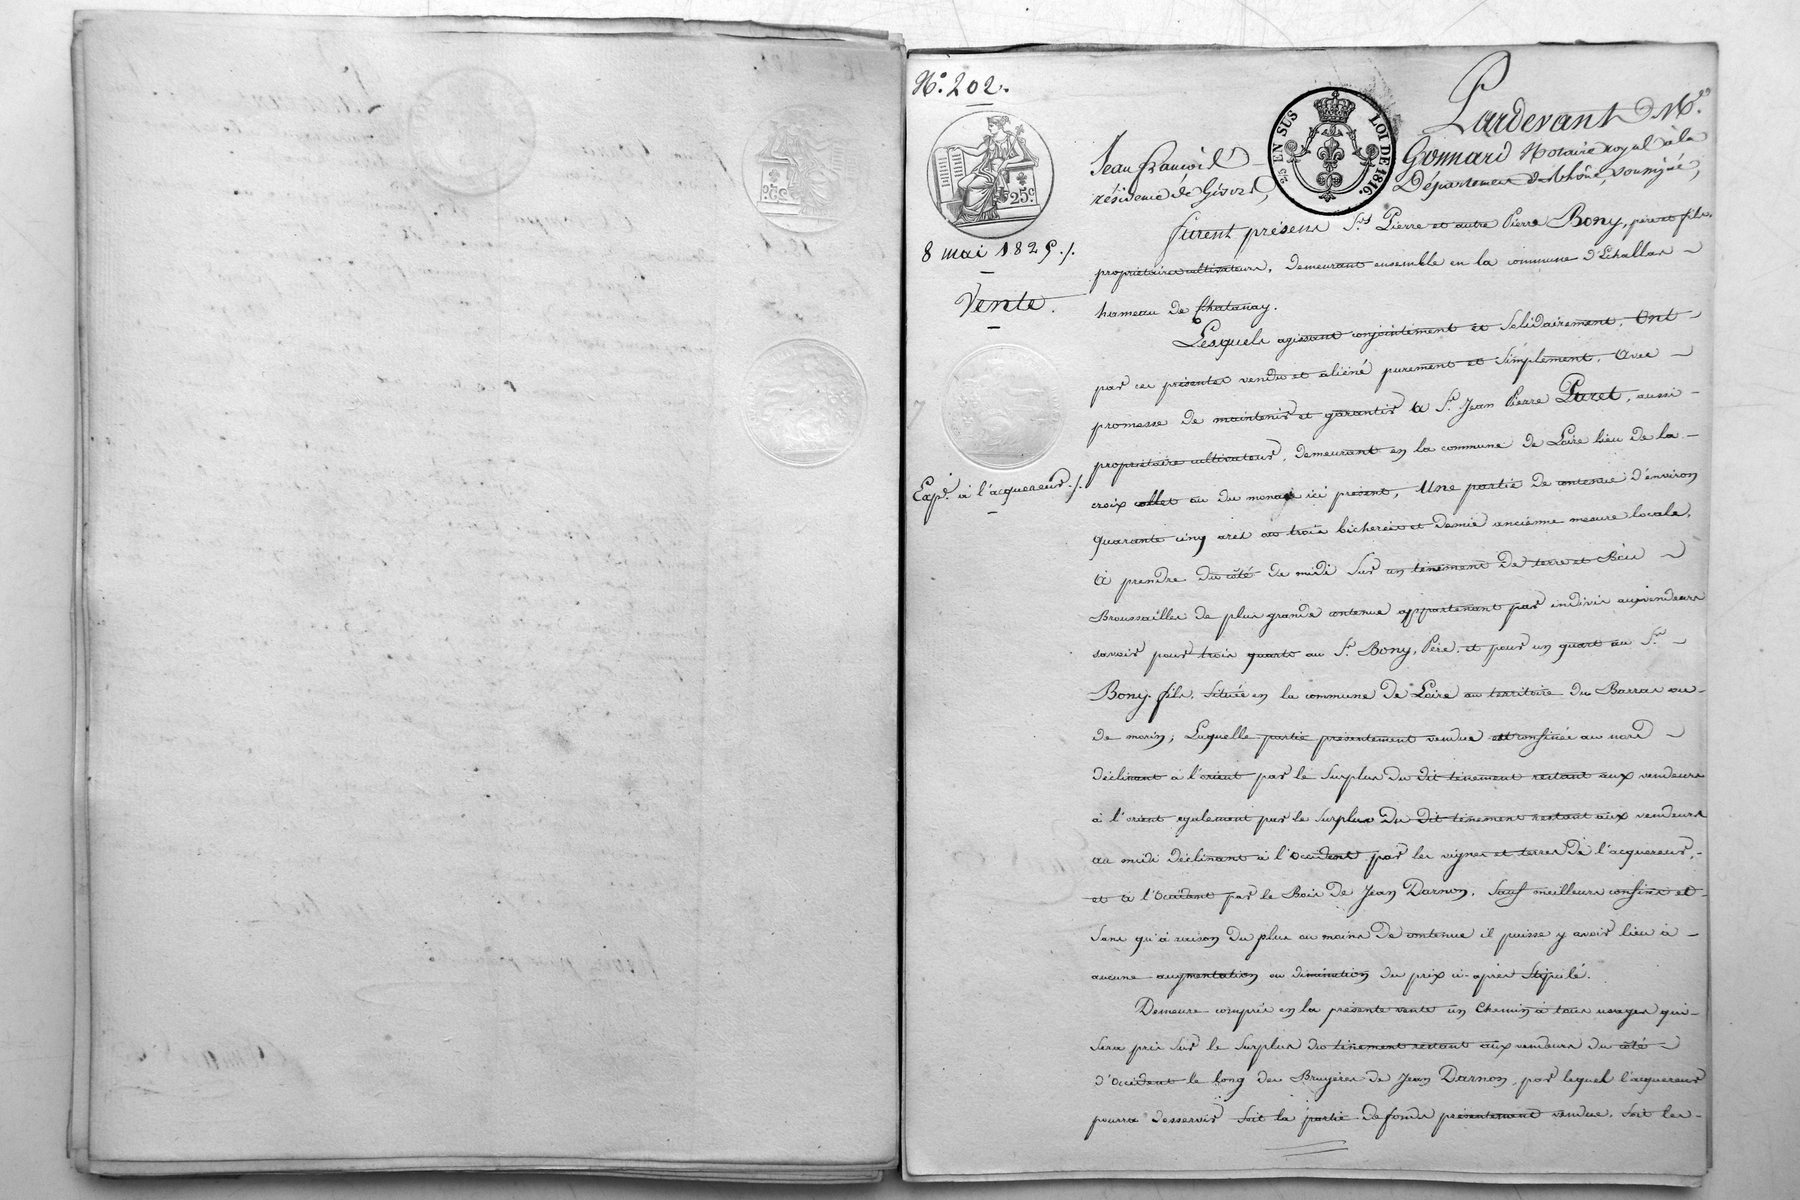 N.º 202.
25 EN SUS LOI DE 1816.
25.c
8 mai 1825./.
Vente.
Exp.on à l'acquereur./.
Pardevant M.e
Jean François Gonnard Notaire royal à la
résidence de Givors, Département du Rhône, soussigné,
furent présens S.rs Pierre et autre Pierre Bony, père et fils,
propriétaires cultivateurs, demeurant ensemble en la commune d'Echallas
hameau de Chatanay.
Lesquels agissant conjointement et solidairement, Ont
par ces présentes vendu et aliéné purement et simplement, Avec
promesse de maintenir et garantir à S.r Jean Pierre Paret, aussi
propriétaire cultivateur, demeurant en la commune de Loire lieu de la
croix collet ou du ici présent, Une partie de contenue d'environ
quarante cinq ares ou trois bicherées et demie ancienne mesure locale,
à prendre du côté de midi sur un tènement de terre et Bois
Broussailles de plus grande contenue appartenant par indivis aux vendeurs
savoir pour trois quarts au S.r Bony, Père, et pour un quart au S.r
Bony fils, située en la commune de Loire au territoire du Barras ou
de morin; Laquelle partie présentement vendue est confinée au nord
déclinant à l'orient par le surplus du dit tènement restant aux vendeurs
à l'orient également par le surplus du dit tènement restant aux vendeurs
au midi déclinant à l'occident par les vignes et terres de l'acquereur,
et à l'Occident par le Bois de Jean Darnon, Sauf meilleurs confins et
sans qu'à raison du plus ou moins de contenue il puisse y avoir lieu à
aucune augmentation ou diminution du prix ci-après stipulé.
Demeure compris en la présente vente un chemin à tous usages qui
sera pris sur le surplus du tènement restant aux vendeurs du côté
d'Occident le long des Bruyères de Jean Darnon, par lequel l'acquereur
pourra desservir soit la partie de fonds présentement vendue, soit les